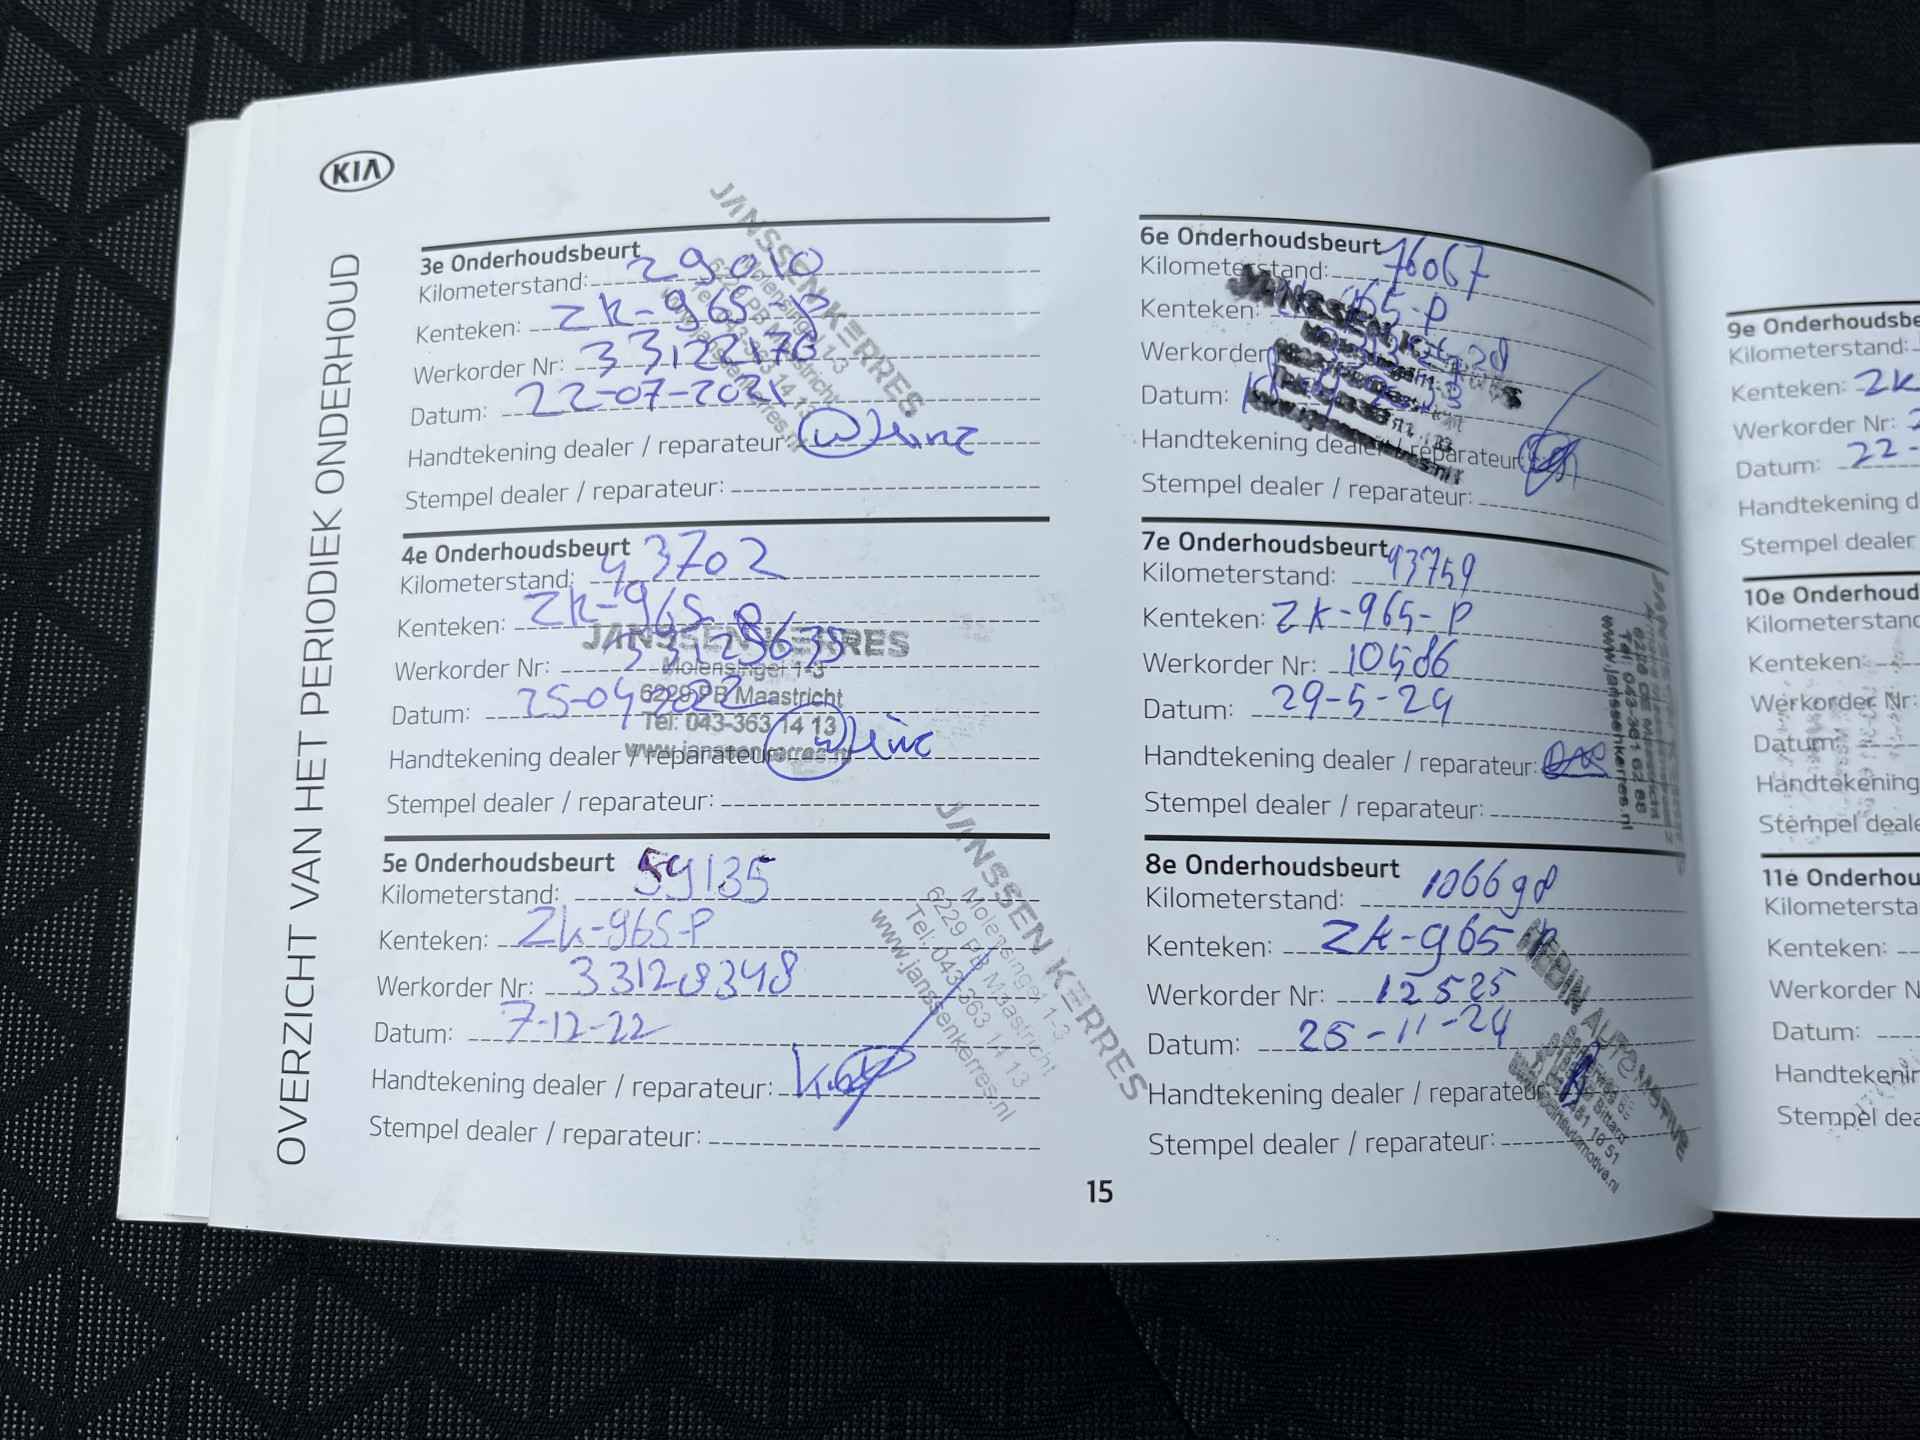 KIA
OVERZICHT VAN HET PERIODIEK ONDERHOUD
3e Onderhoudsbeurt
Kilometerstand: 29010
Kenteken: ZK-965-P
Werkorder Nr: 33122176
Datum: 22-07-2021
Handtekening dealer / reparateur:
Stempel dealer / reparateur:
JANSSEN KERRES
Molensingel 1-3
6229 PB Maastricht
Tel: 043-363 14 13
www.janssenkerres.nl
4e Onderhoudsbeurt
Kilometerstand: 43702
Kenteken: ZK-965-P
Werkorder Nr: 33125635
Datum: 25-04-2022
Handtekening dealer / reparateur:
Stempel dealer / reparateur:
JANSSEN KERRES
Molensingel 1-3
6229 PB Maastricht
Tel: 043-363 14 13
www.janssenkerres.nl
5e Onderhoudsbeurt
Kilometerstand: 59135
Kenteken: ZK-965-P
Werkorder Nr: 33128348
Datum: 7-12-22
Handtekening dealer / reparateur:
Stempel dealer / reparateur:
JANSSEN KERRES
Molensingel 1-3
6229 PB Maastricht
Tel: 043-363 14 13
www.janssenkerres.nl
6e Onderhoudsbeurt
Kilometerstand: 76067
Kenteken: 965-P
Werkorder
Datum:
Handtekening dealer / reparateur:
Stempel dealer / reparateur:
JANSSEN
7e Onderhoudsbeurt
Kilometerstand: 93759
Kenteken: ZK-965-P
Werkorder Nr: 10586
Datum: 29-5-24
Handtekening dealer / reparateur:
Stempel dealer / reparateur:
Tel: 043-361 62 88
www.janssenkerres.nl
8e Onderhoudsbeurt
Kilometerstand: 106698
Kenteken: ZK-965-P
Werkorder Nr: 12525
Datum: 25-11-24
Handtekening dealer / reparateur
Stempel dealer / reparateur:
HEDIN AUTOMOTIVE
15
9e Onderhoudsbe
Kilometerstand:
Kenteken: ZK
Werkorder Nr:
Datum: 22-
Handtekening d
Stempel dealer
10e Onderhoud
Kilometerstand
Kenteken:
Werkorder Nr:
Datum:
Handtekening
Stempel deale
11e Onderhou
Kilometersta
Kenteken:
Werkorder N
Datum:
Handtekenin
Stempel dea